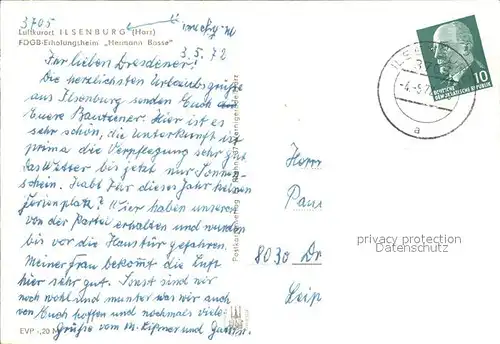 3705
Luftkurort ILSENBURG (Harz)
FDGB-Erholungsheim „Hermann Bosse"
3.5.72
Ihr lieben Dresdener!
Die herzlichsten Urlaubsgrüße
aus Ilsenburg senden Euch
Euere Bautzener. Hier ist es
sehr schön, die Unterkunft ist
prima die Verpflegung sehr gut
das Wetter bis jetzt nur Sonnen-
schein. Habt Ihr dieses Jahr keinen
Ferienplatz? Wir haben unseren
von der Partei erhalten und wurden
bis vor die Haustür gefahren.
Meiner Frau bekommt die Luft
hier sehr gut. Sonst sind wir
noch wohl und munter was wir auch
von Euch hoffen und nochmals viele
Grüße vom
EVP -,20 M
Herrn
Paul
8030 Dr
Leip
10
DEUTSCHE
DEMOKRATISCHE REPUBLIK
a
privacy protection
DATENSCHUTZ